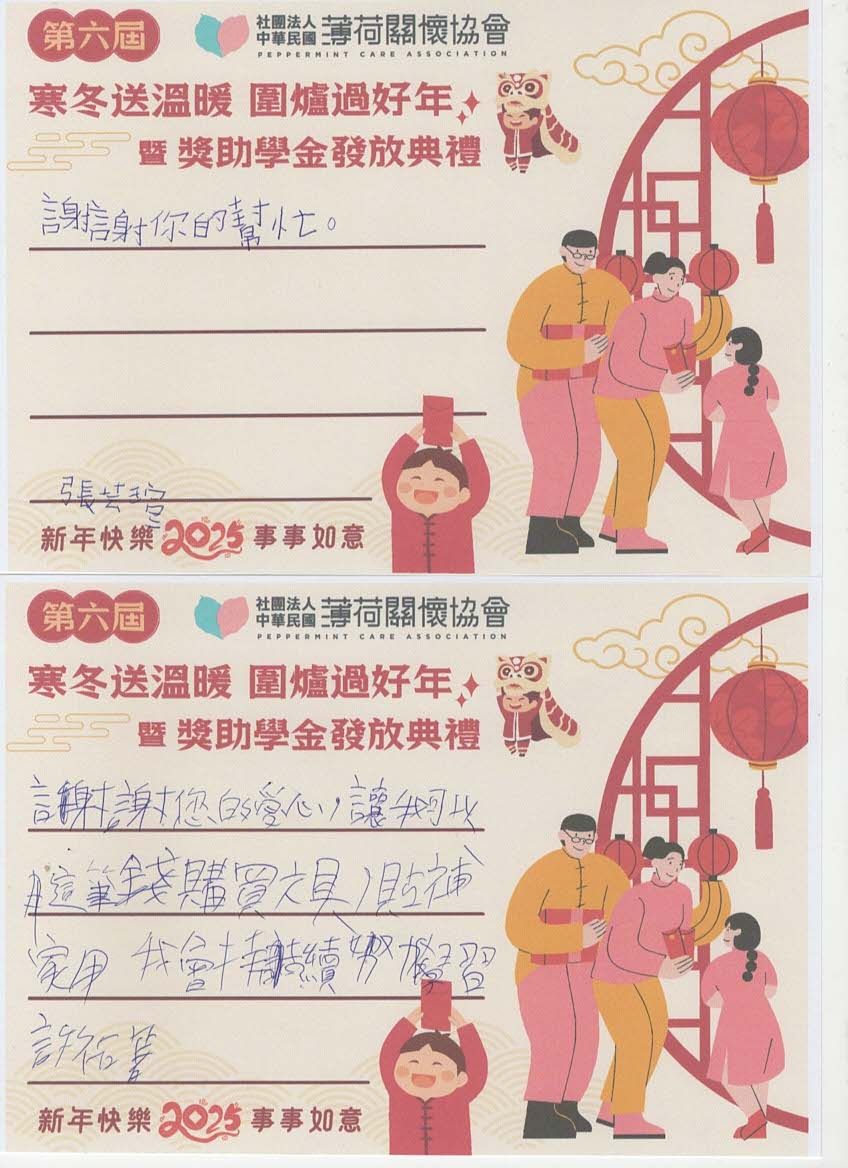 第六屆
社團法人
中華民國
薄荷關懷協會
PEPPERMINT CARE ASSOCIATION
寒冬送溫暖 圍爐過好年
暨 獎助學金發放典禮
謝謝你的幫忙。
張芸瑄
新年快樂 2025 事事如意
第六屆
社團法人
中華民國
薄荷關懷協會
PEPPERMINT CARE ASSOCIATION
寒冬送溫暖 圍爐過好年
暨 獎助學金發放典禮
謝謝您的愛心,讓我可以
用這筆錢購買文具,貼補
家用 我會持續努力學習
許祐菁
新年快樂 2025 事事如意